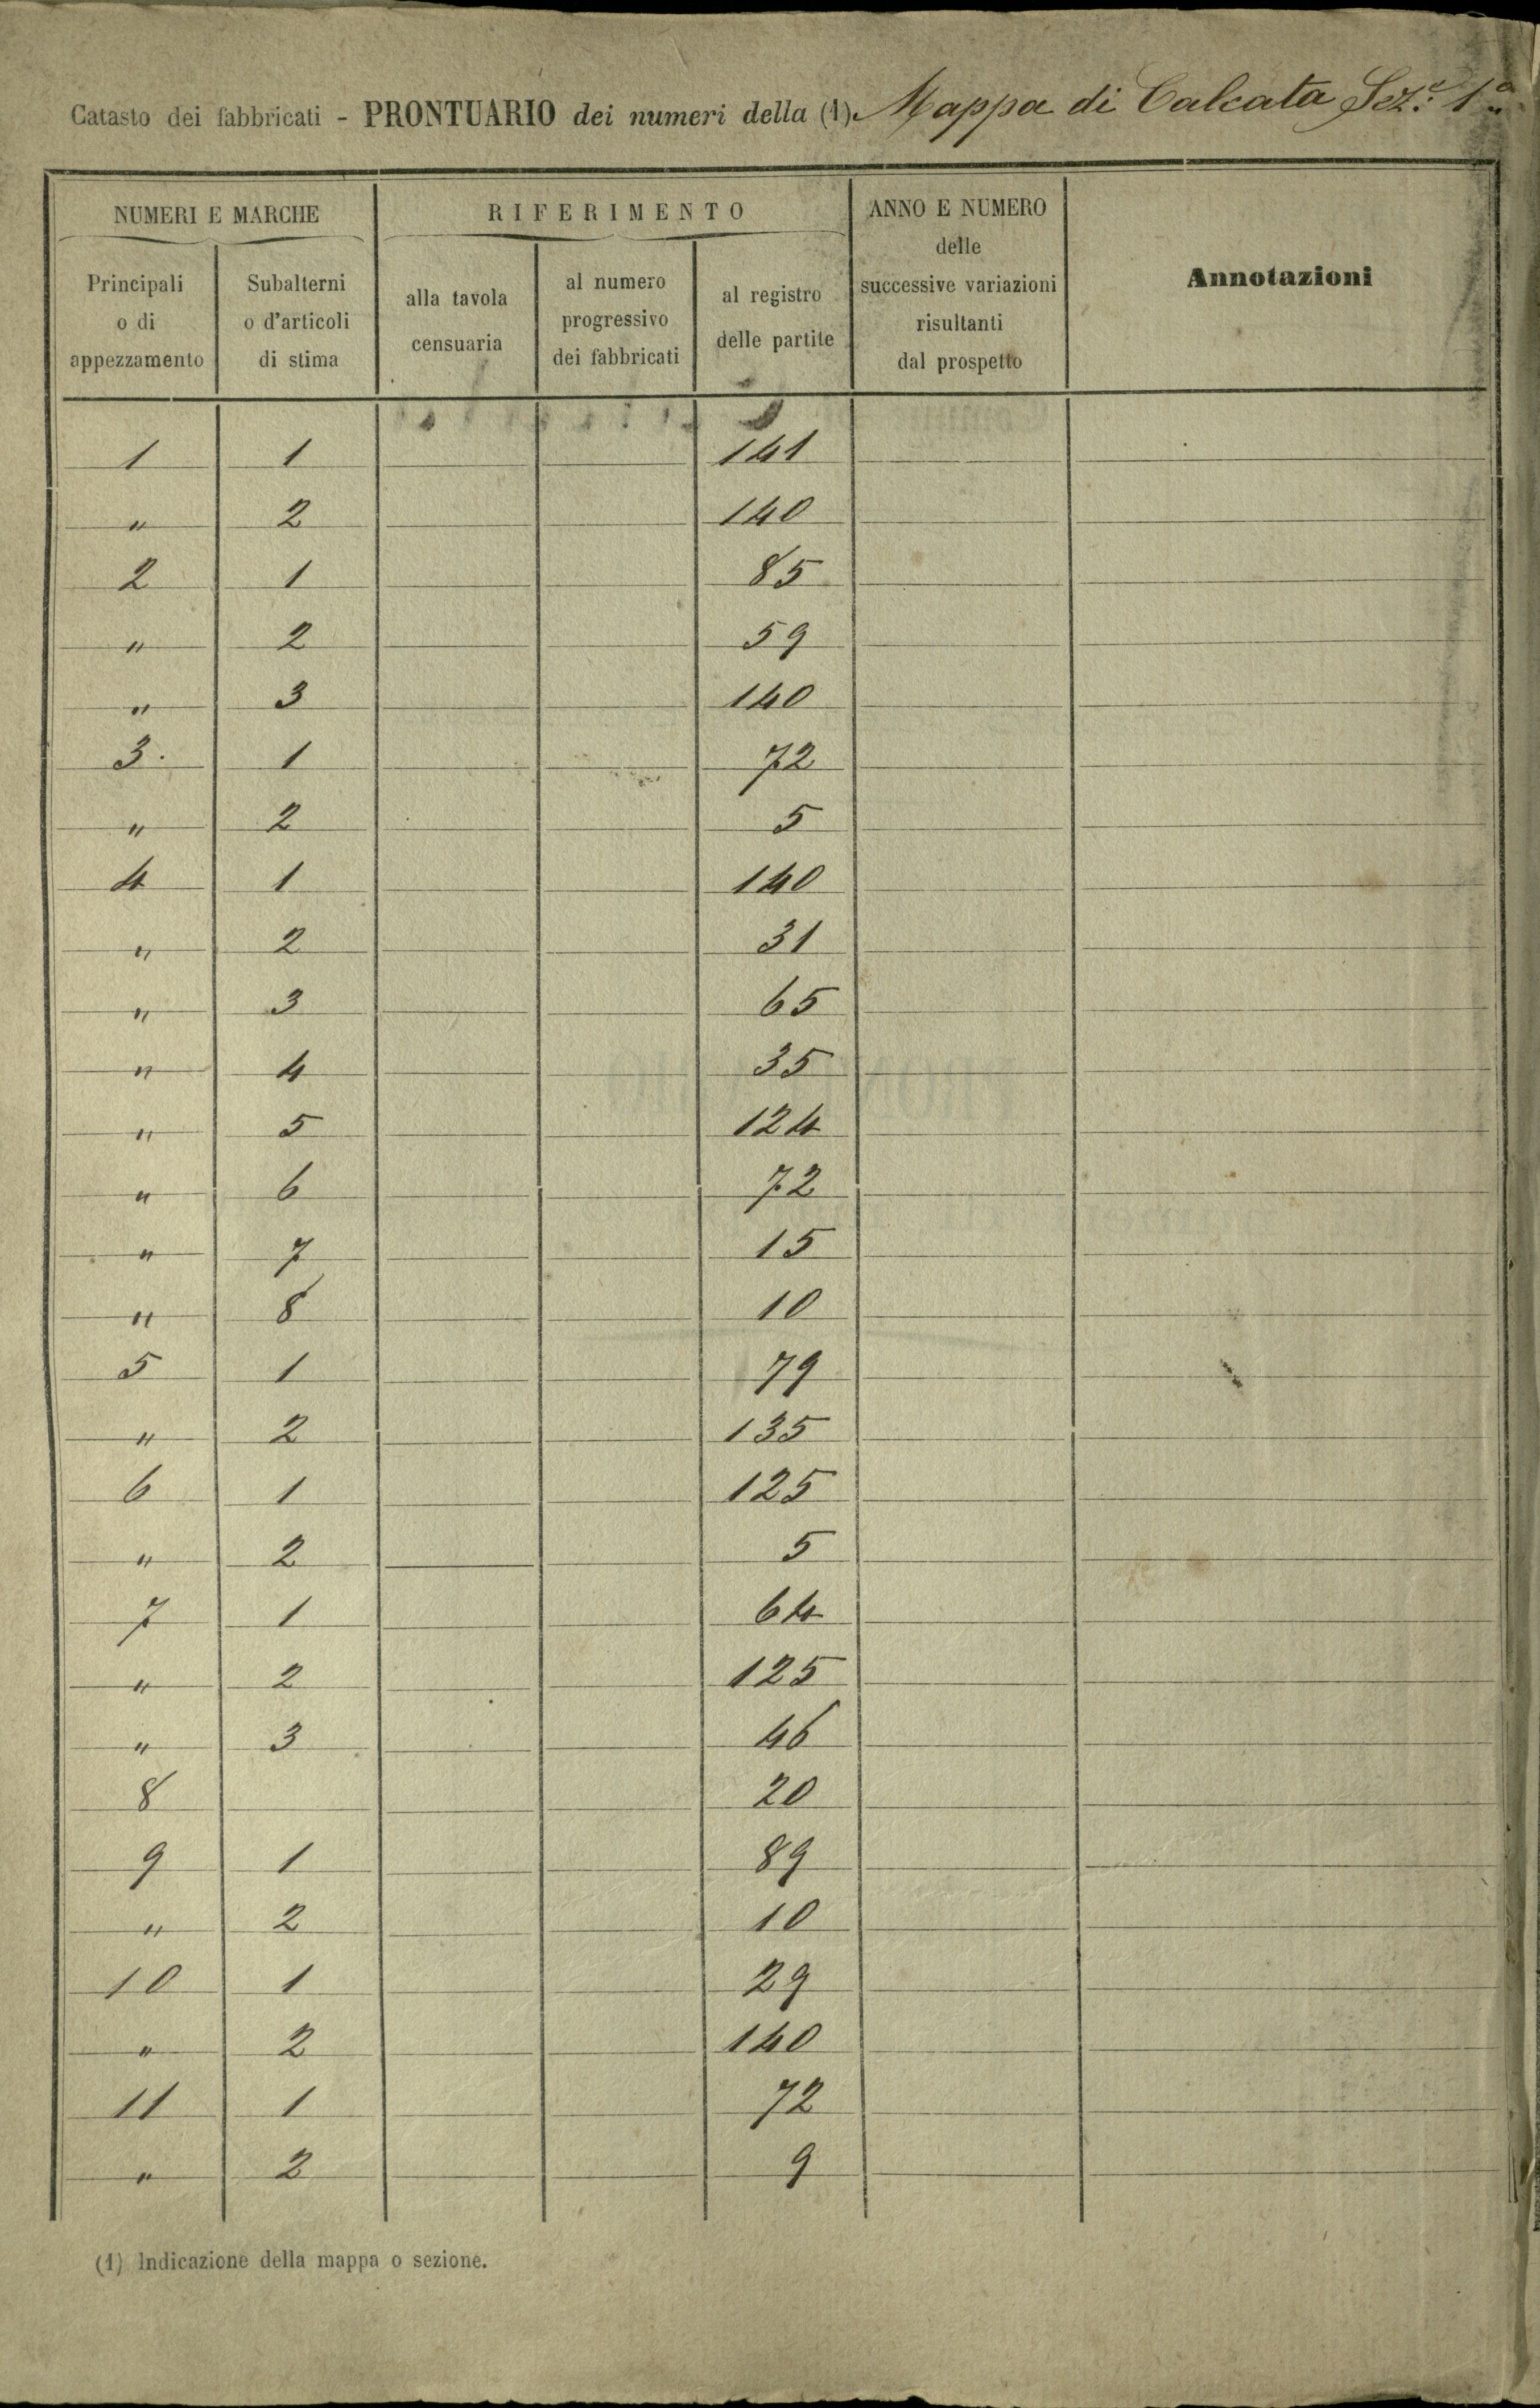 Catasto dei fabbricati - PRONTUARIO dei numeri della (1) Mappa di Calcata Sez.e 1a
NUMERI E MARCHE RIFERIMENTO ANNO E NUMERO delle successive variazioni risultanti dal prospetto Annotazioni
Principali o di appezzamento Subalterni o d'articoli di stima alla tavola censuaria al numero progressivo dei fabbricati al registro delle partite
1 1 141
" 2 140
2 1 85
" 2 59
" 3 140
3. 1 72
" 2 5
4 1 140
" 2 31
" 3 65
" 4 35
" 5 124
" 6 72
" 7 15
" 8 10
5 1 79
" 2 135
6 1 125
" 2 5
7 1 64
" 2 125
" 3 46
8 20
9 1 89
" 2 10
10 1 29
" 2 140
11 1 72
" 2 9
(1) Indicazione della mappa o sezione.